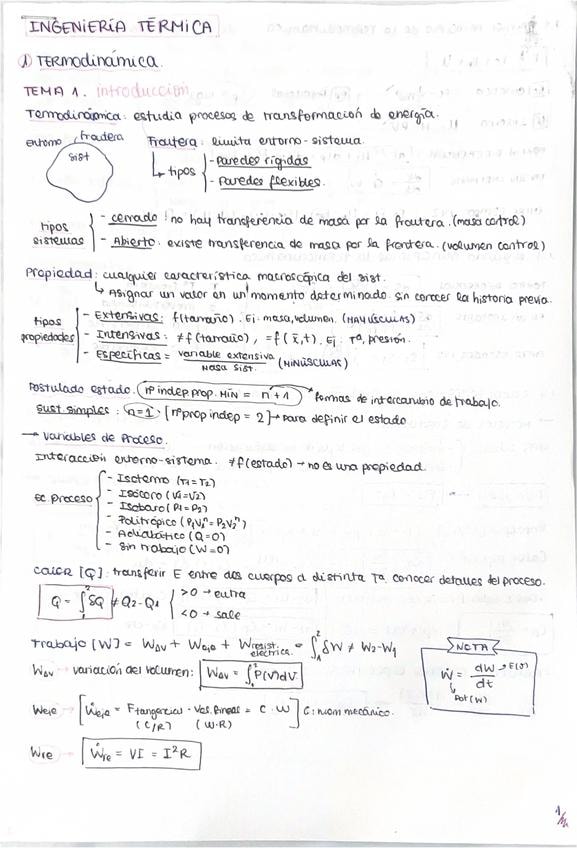 INGENIERÍA TÉRMICA
1) TERMODINÁMICA.
TEMA 1. introducción
Termodinámica: estudia procesos de transformación de energía.
entorno frontera
sist
Frontera: limita entorno-sistema.
↳ tipos
- Paredes rígidas
- Paredes flexibles.
tipos sistemas
- cerrado: no hay transferencia de masa por la frontera. (masa control)
- Abierto: existe transferencia de masa por la frontera. (volumen control)
Propiedad: cualquier característica macroscópica del sist.
↳ Asignar un valor en un momento determinado sin conocer la historia previa.
tipos propiedades
- Extensivas: f(tamaño). Ej: masa, volumen. (MAYÚSCULAS)
- Intensivas: ≠f(tamaño), =f(x̄,t). Ej: Tª, presión.
- Específicas = variable extensiva / Masa sist. (MINÚSCULAS)
Postulado estado. nº indep prop. MÍN = n+1 → formas de intercambio de trabajo.
Sust. simples: n=1 [nº prop indep = 2] → para definir el estado
→ Variables de Proceso.
Interacción entorno-sistema. ≠f(estado) → no es una propiedad.
Ec. proceso
- Isotermo (T1=T2)
- Isócoro (V1=V2)
- Isobaro (P1=P2)
- Politrópico (P1V1ⁿ=P2V2ⁿ)
- Adiabático (Q=0)
- Sin trabajo (W=0)
Calor [Q]: transferir E entre dos cuerpos a distinta Tª. conocer detalles del proceso.
Q = ∫₁² δQ ≠ Q2-Q1
>0 → entra
<0 → sale
Trabajo [W] = WΔV + Weje + Wresist. eléctrica. = ∫₁² δW ≠ W2-W1
WΔV → variación del volumen: WΔV = ∫₁² P(V)dV
NOTA
Ẇ = dW/dt → E(J)
↳ Pot (W)
Weje → [Ẇeje = Ftangencial · Vel. lineal = C · W] C: mom mecánico.
(C/R) (W·R)
Wre → Ẇre = VI = I²R